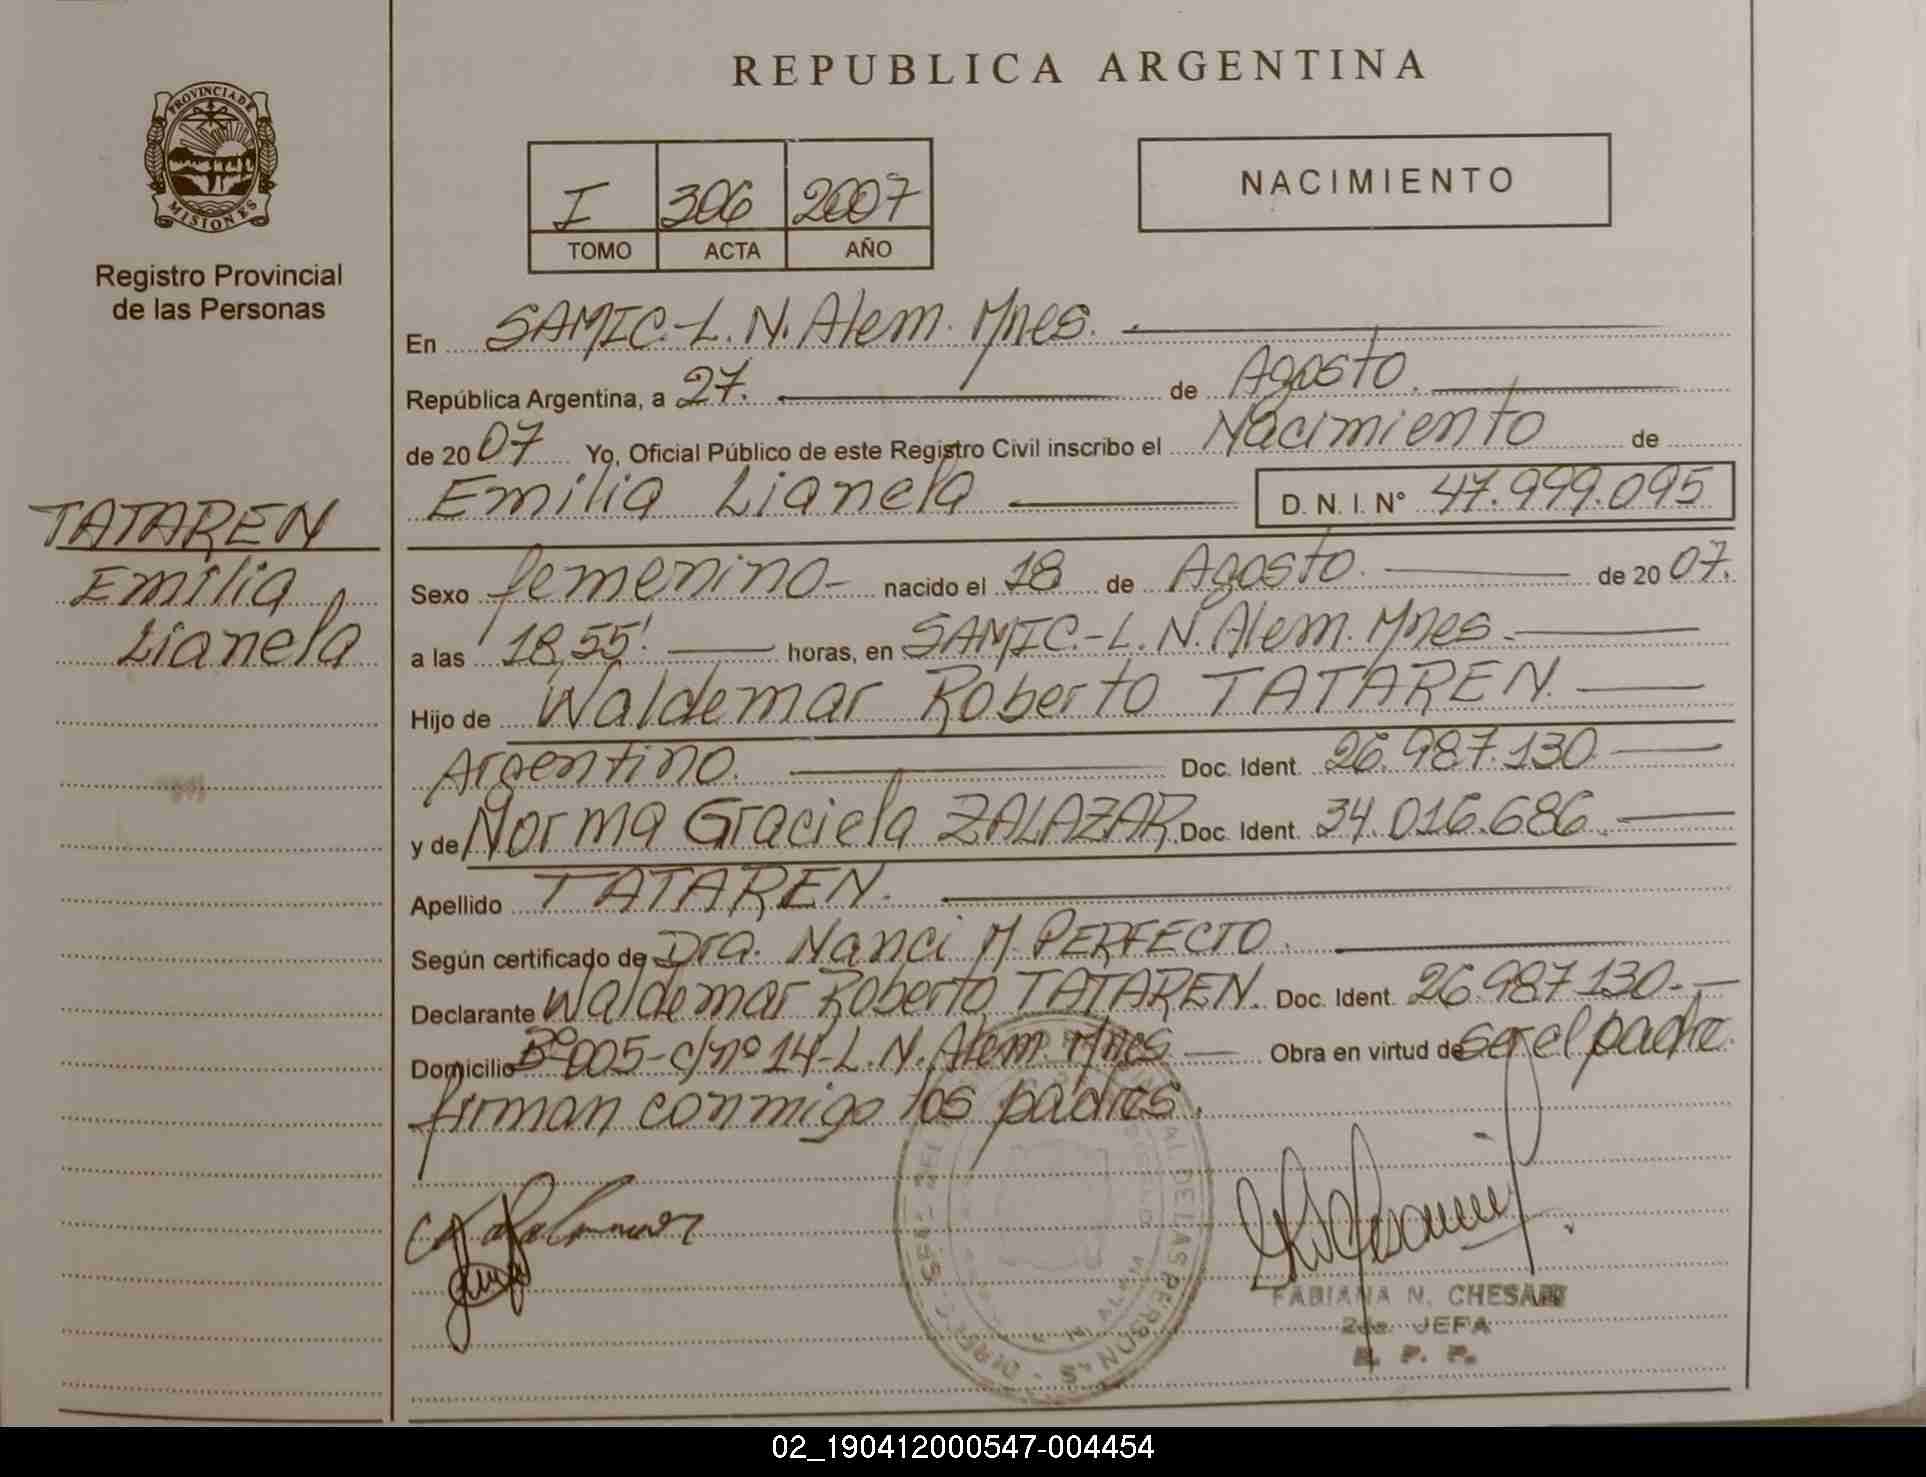 REPUBLICA ARGENTINA
PROVINCIA DE
MISIONES
Registro Provincial
de las Personas
I 306 2007
TOMO ACTA AÑO
NACIMIENTO
En SAMIC.-L.N. Alem. Mnes.
República Argentina, a 27. de Agosto.
de 2007 Yo, Oficial Público de este Registro Civil inscribo el Nacimiento de
Emilia Lianela D. N. I. N° 47.999.095
TATAREN
Emilia
Lianela
Sexo femenino- nacido el 18 de Agosto. de 2007.
a las 18,55' horas, en SAMIC.-L.N. Alem. Mnes.
Hijo de Waldemar Roberto TATAREN.
Argentino. Doc. Ident. 26.987.130
y de Norma Graciela ZALAZAR. Doc. Ident. 34.016.686
Apellido TATAREN.
Según certificado de Dra. Nanci M. PERFECTO.
Declarante Waldemar Roberto TATAREN. Doc. Ident. 26.987.130-
Domicilio Bº 005-c/nº 14-L.N. Alem. Mnes Obra en virtud de ser el padre.
firman conmigo los padres.
FABIANA N. CHESANI
2da. JEFA
R. P. P.
02_190412000547-004454